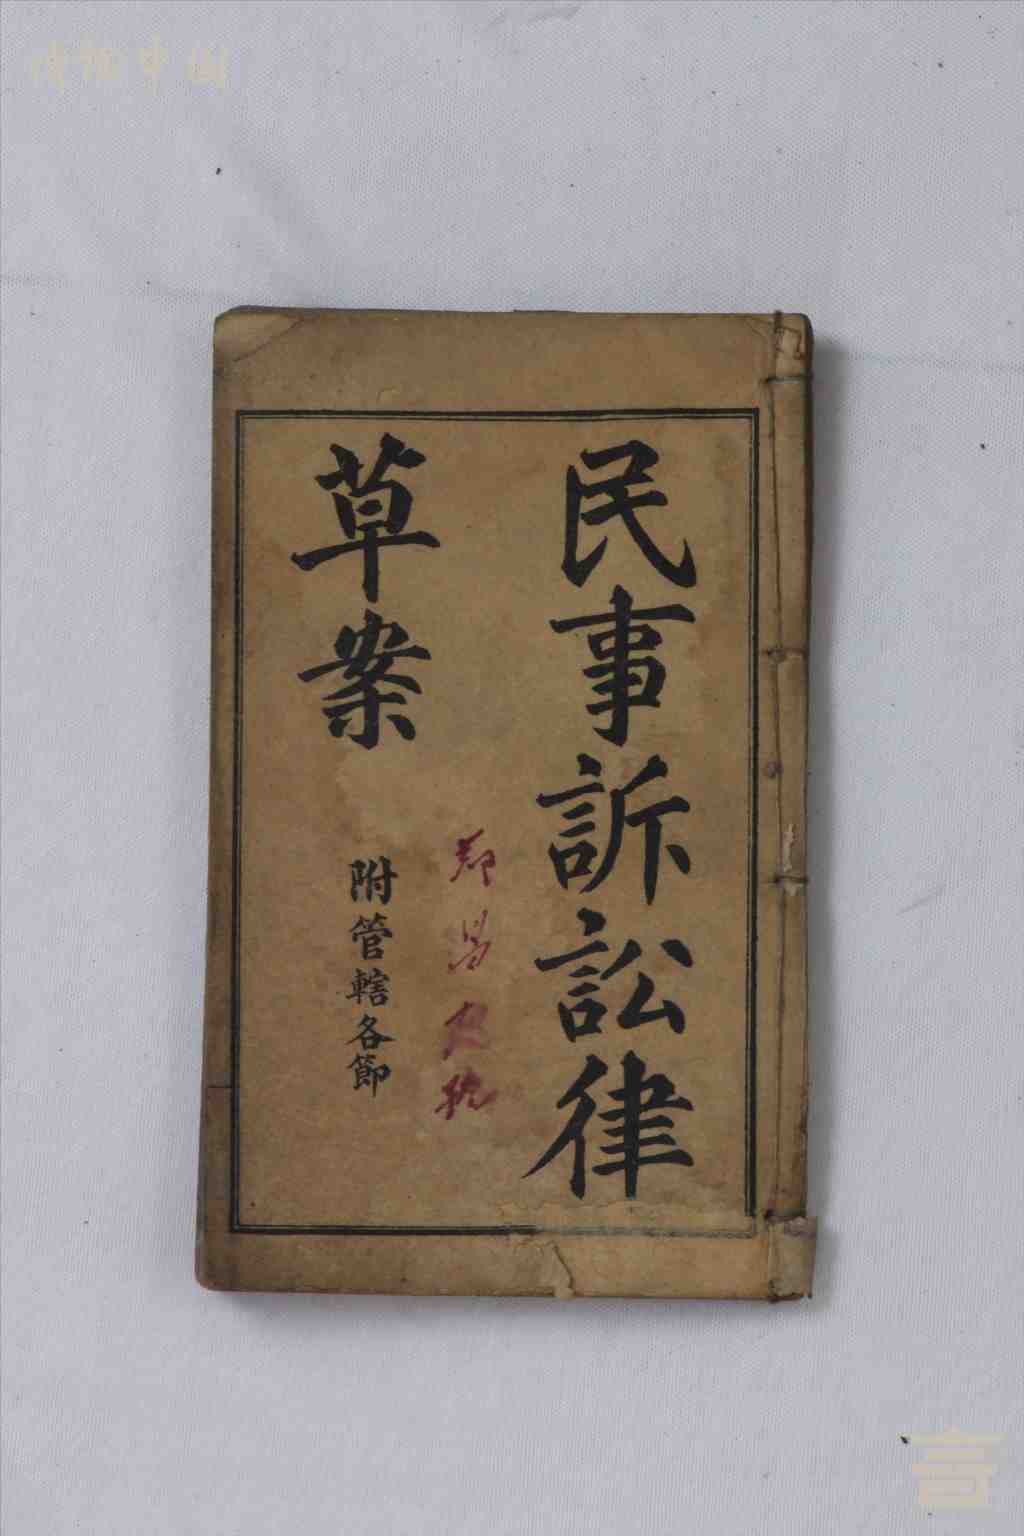 民事訴訟律
草案
附管轄各節
博物中国